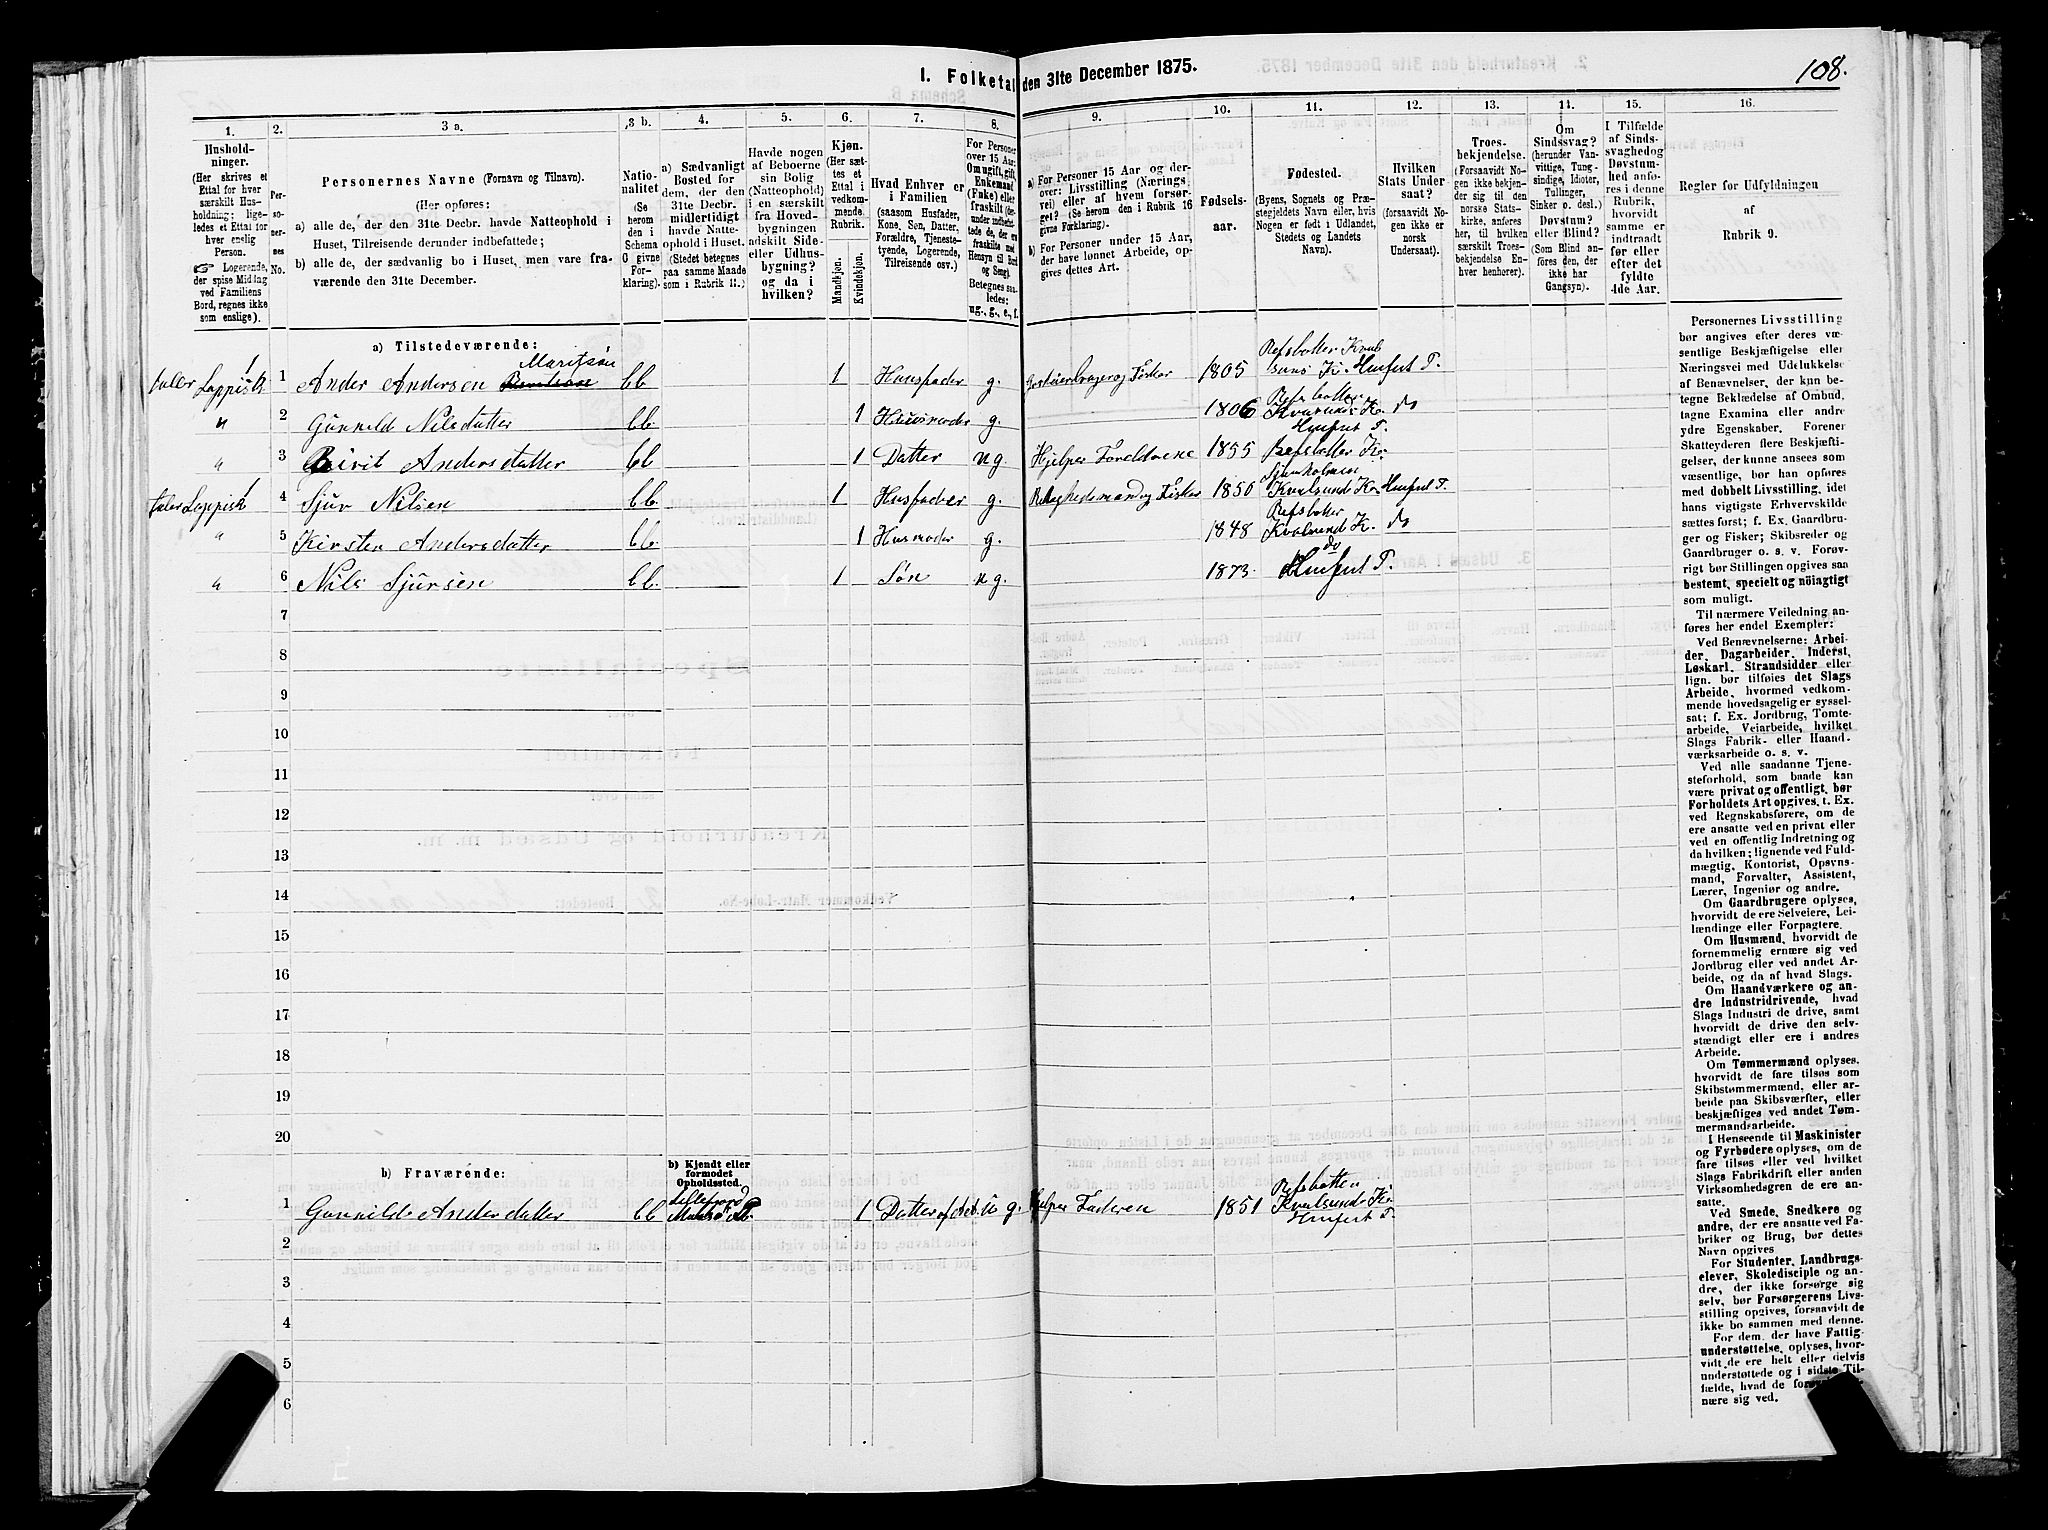 I. Folketal den 31te December 1875.
108.
1.
2.
3 a.
3 b.
4.
5.
6.
7.
8.
9.
10.
11.
12.
13.
14.
15.
16.
Hushold-
ninger.
(Her skrives et
Ettal for hver
særskilt Hus-
holdning; lige-
ledes et Ettal for
hver enslig
Person.
☞ Logerende,
der spise Middag
ved Familiens
Bord, regnes ikke
som enslige).
Per-
so-
ner-
nes
No.
Personernes Navne (Fornavn og Tilnavn).
(Her opføres:
a) alle de, der den 31te Decbr. havde Natteophold i
Huset, Tilreisende derunder indbefattede;
b) alle de, der sædvanlig bo i Huset, men vare fra-
værende den 31te December.
Natio-
nalitet
(Se
herom
den i
Schema
C givne
For-
klaring).
a) Sædvanligt
Bosted for
dem, der den
31te Decbr.
midlertidigt
havde Natte-
ophold i Huset.
(Stedet betegnes
paa samme Maade
som i Rubrik 11.)
Havde nogen
af Beboerne
sin Bolig
(Natteophold)
i en særskilt
fra Hoved-
bygningen
adskilt Side-
eller Udhus-
bygning?
og da i
hvilken?
Kjøn.
(Her sæt-
tes et
Ettal i
vedkom-
mende
Rubrik.
Mandkjøn.
Kvindekjøn.
Hvad Enhver er
i Familien
(saasom Husfader,
Kone, Søn, Datter,
Forældre, Tjeneste-
tyende, Logerende,
Tilreisende osv.)
For Personer
over 15 Aar:
Om ugift, gift,
Enkemand
(Enke) eller
fraskilt (der-
under indbefat-
tede de, der ere
fraskilte med
Hensyn til Bord
og Seng).
Betegnes saa-
ledes:
ug., g., e., f.
a) For Personer 15 Aar og der-
over: Livsstilling (Nærings-
vei) eller af hvem forsør-
get? (Se herom den i Rubrik 16
givne Forklaring).
b) For Personer under 15 Aar,
der have lønnet Arbeide, op-
gives dettes Art.
Fødsels-
aar.
Fødested.
(Byens, Sognets og Præ-
stegjeldets Navn eller, hvis
Nogen er født i Udlandet,
Stedets og Landets
Navn).
Hvilken
Stats Under-
saat?
(forsaavidt No-
gen ikke er
norsk
Undersaat).
Troes-
bekjendelse.
(Forsaavidt No-
gen ikke bekjen-
der sig til den
norske Stats-
kirke, anføres
her, til hvilken
særskilt Troes-
bekjendelse En-
hver henhører).
Om
Sindssvag?
(herunder Van-
vittige, Tung-
sindige, Idioter,
Tullinger,
Sinker o. desl.)
Døvstum?
eller Blind?
(Som Blind an-
føres den, der
ikke har
Gangsyn).
I Tilfælde
af Sinds-
svaghed og
Døvstum-
hed anfø-
res i denne
Rubrik,
hvorvidt
samme er
indtraadt
før eller
efter det
fyldte
4de Aar.
Regler for Udfyldningen
af
Rubrik 9.
a) Tilstedeværende:
taler Lappisk 1 1 Ander Andersen Maritsøn bb 1 Huusfader g. Fisker 1805 Refsbotten Hmfest P.
" 2 Gunnild Nilsdatter bb 1 Huusmoder g. 1806 Refsbotten Kvalsund K. Hmfest P. do
" 3 Birit Andersdatter bb 1 Datter ug. Hjelper Foreldrene 1855 Refsbotten K.
taler Lappisk 1 4 Sjur Nilsen bb 1 Husfader g. Fisker 1850 Kvalsund K. Hmfest P.
" 5 Kirsten Andersdatter bb 1 Husmoder g. 1848 Refsbotten Kvalsund K. do
" 6 Nils Sjursen bb 1 Søn ug. 1873. do Hmfest P.
7
8
9
10
11
12
13
14
15
16
17
18
19
20
b) Fraværende:
b) Kjendt eller
formodet
Opholdssted.
1 Gunnilde Andersdatter bb Lillefjord 1 Datter ug. Hjelper Faderen 1851 Refsbotten Kvalsund K. Hmfest P.
2
3
4
5
6
Personernes Livsstilling
bør angives efter deres væ-
sentlige Beskjæftigelse eller
Næringsvei med Udelukkelse
af Benævnelser, der kun be-
tegne Beklædelse af Ombud,
tagne Examina eller andre
ydre Egenskaber. Forener
Skatteyderen flere Beskjæfti-
gelser, der kunne ansees som
væsentlige, bør han opføres
med dobbelt Livsstilling, idet
hans vigtigste Erhvervskilde
sættes først; f. Ex. Gaardbru-
ger og Fisker; Skibsreder og
Gaardbruger o. s. v. Forøv-
rigt bør Stillingen opgives saa
bestemt, specielt og nøiagtigt
som muligt.
Til nærmere Veiledning an-
føres her endel Exempler:
Ved Benævnelserne: Arbei-
der, Dagarbeider, Inderst,
Løskarl, Strandsidder eller
lign. bør tilføies det Slags
Arbeide, hvormed vedkom-
mende hovedsagelig er syssel-
sat; f. Ex. Jordbrug, Tomte-
arbeide, Veiarbeide, hvilket
Slags Fabrik- eller Haand-
værksarbeide o. s. v.
Ved alle saadanne Tjene-
steforhold, som baade kan
være privat og offentligt, bør
Forholdets Art opgives, t. Ex.
ved Regnskabsførere, om de
ere ansatte ved en privat eller
ved en offentlig Indretning og
da hvilken; lignende ved Fuld-
mægtig, Kontorist, Opsyns-
mand, Forvalter, Assistent,
Lærer, Ingeniør og andre.
Om Gaardbrugere oplyses,
hvorvidt de ere Selveiere, Lei-
lændinge eller Forpagtere.
Om Husmænd, hvorvidt de
fornemmelig ernære sig ved
Jordbrug eller ved andet Ar-
beide, og da af hvad Slags.
Om Haandværkere og an-
dre Industridrivende, hvad
Slags Industri de drive, samt
hvorvidt de drive den selv-
stændigt eller ere i andres
Arbeide.
Om Tømmermænd oplyses,
hvorvidt de fare tilsøs som
Skibstømmermænd, eller ar-
beide paa Skibsværfter, eller
beskjæftiges ved andet Tøm-
mermandsarbeide.
I Henseende til Maskinister
og Fyrbødere oplyses, om de
fare tilsøs eller ved hvilket
Slags Fabrikdrift eller anden
Virksomhedsgren de ere an-
satte.
Ved Smede, Snedkere og
andre, der ere ansatte ved Fa-
briker og Brug, bør dettes
Navn opgives
For Studenter, Landbrugs-
elever, Skoledisciple og an-
dre, der ikke forsørge sig
selv, bør Forsørgerens Livs-
stilling opgives, forsaavidt de
ikke bo sammen med denne.
For dem, der have Fattig-
understøttelse, oplyses, hvor-
vidt de ere helt eller delvis
understøttede og i sidste Til-
fælde, hvad de
nære sig ved.